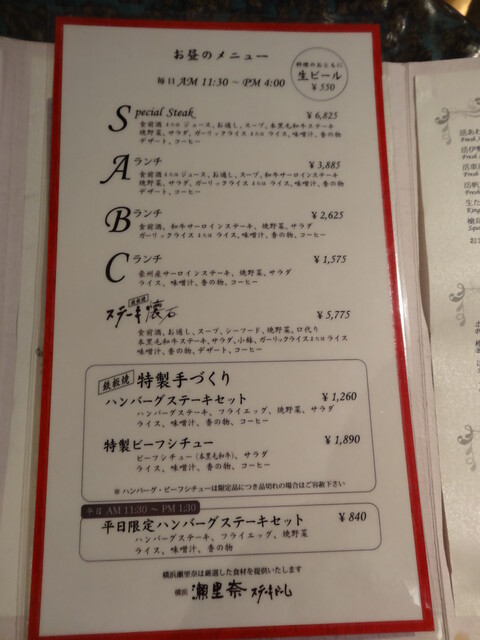 お昼のメニュー
毎日 AM 11:30 ~ PM 4:00
料理のおともに
生ビール
¥550
Special Steak ¥6,825
食前酒 または ジュース、お通し、スープ、本黒毛和牛ステーキ
焼野菜、サラダ、ガーリックライス または ライス、味噌汁、香の物
デザート、コーヒー
Aランチ ¥3,885
食前酒 または ジュース、お通し、スープ、和牛サーロインステーキ
焼野菜、サラダ、ガーリックライス または ライス、味噌汁、香の物
デザート、コーヒー
Bランチ ¥2,625
食前酒、和牛サーロインステーキ、焼野菜、サラダ
ガーリックライス または ライス、味噌汁、香の物、コーヒー
Cランチ ¥1,575
豪州産サーロインステーキ、焼野菜、サラダ
ライス、味噌汁、香の物、コーヒー
鉄板焼
ステーキ懐石 ¥5,775
食前酒、お通し、スープ、シーフード、焼野菜、口代り
本黒毛和牛ステーキ、サラダ、小鉢、ガーリックライスまたはライス
味噌汁、香の物、デザート、コーヒー
鉄板焼 特製手づくり
ハンバーグステーキセット ¥1,260
ハンバーグステーキ、フライエッグ、焼野菜、サラダ
ライス、味噌汁、香の物、コーヒー
特製ビーフシチュー ¥1,890
ビーフシチュー(本黒毛和牛)、サラダ
ライス、味噌汁、香の物、コーヒー
※ハンバーグ・ビーフシチューは限定品につき品切れの場合はご容赦下さい
平日 AM 11:30 ~ PM 1:30
平日限定ハンバーグステーキセット ¥840
ハンバーグステーキ、フライエッグ、焼野菜
ライス、味噌汁、香の物
横浜瀬里奈は厳選した食材を提供いたします
横浜 瀬里奈 ステーキルーム